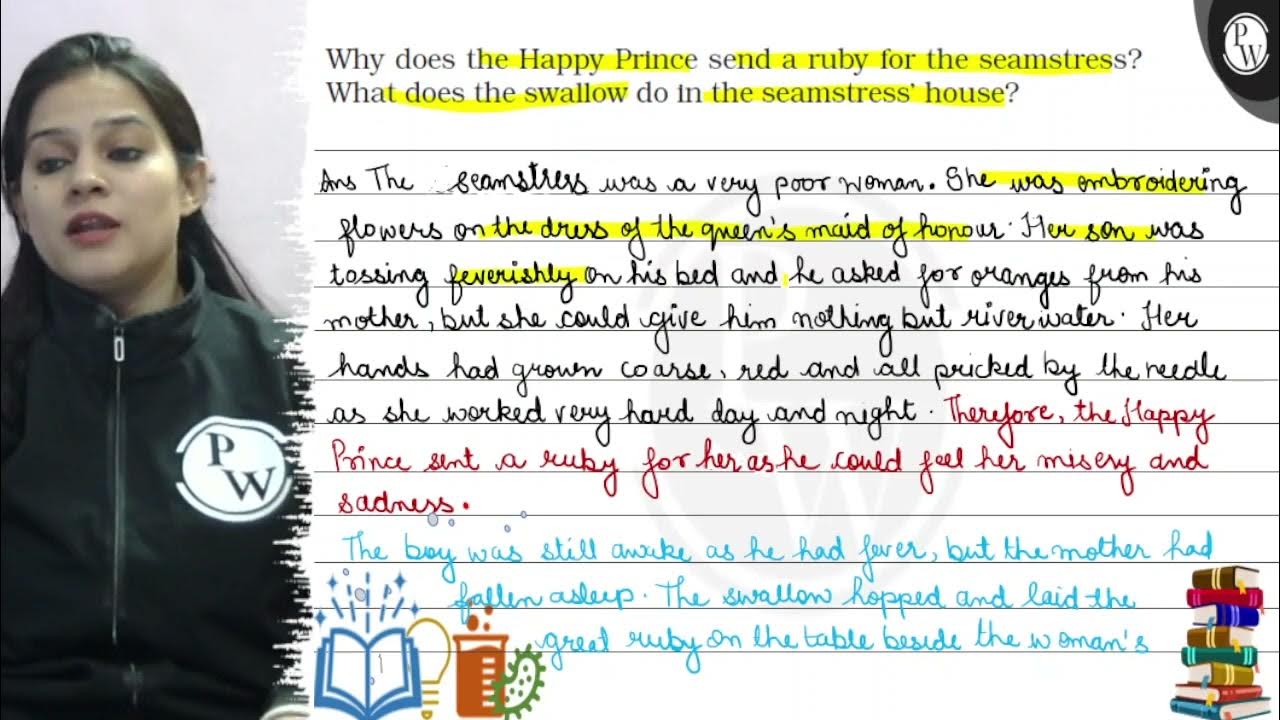 P
W
Why does the Happy Prince send a ruby for the seamstress?
What does the swallow do in the seamstress' house?
Ans The seamstress was a very poor woman. She was embroidering
flowers on the dress of the queen's maid of honour. Her son was
tossing feverishly on his bed and he asked for oranges from his
mother, but she could give him nothing but river water. Her
hands had grown coarse, red and all pricked by the needle
as she worked very hard day and night. Therefore, the Happy
Prince sent a ruby for her as he could feel her misery and
sadness.
The boy was still awake as he had fever, but the mother had
fallen asleep. The swallow hopped and laid the
great ruby on the table beside the woman's
P
W